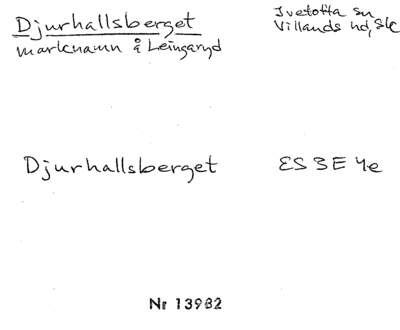 Djurhallsberget
Ivetofta sn
marknamn å Leingaryd
Villands hd, Sk
Djurhallsberget
ES 3 E 4e
Nr 13982